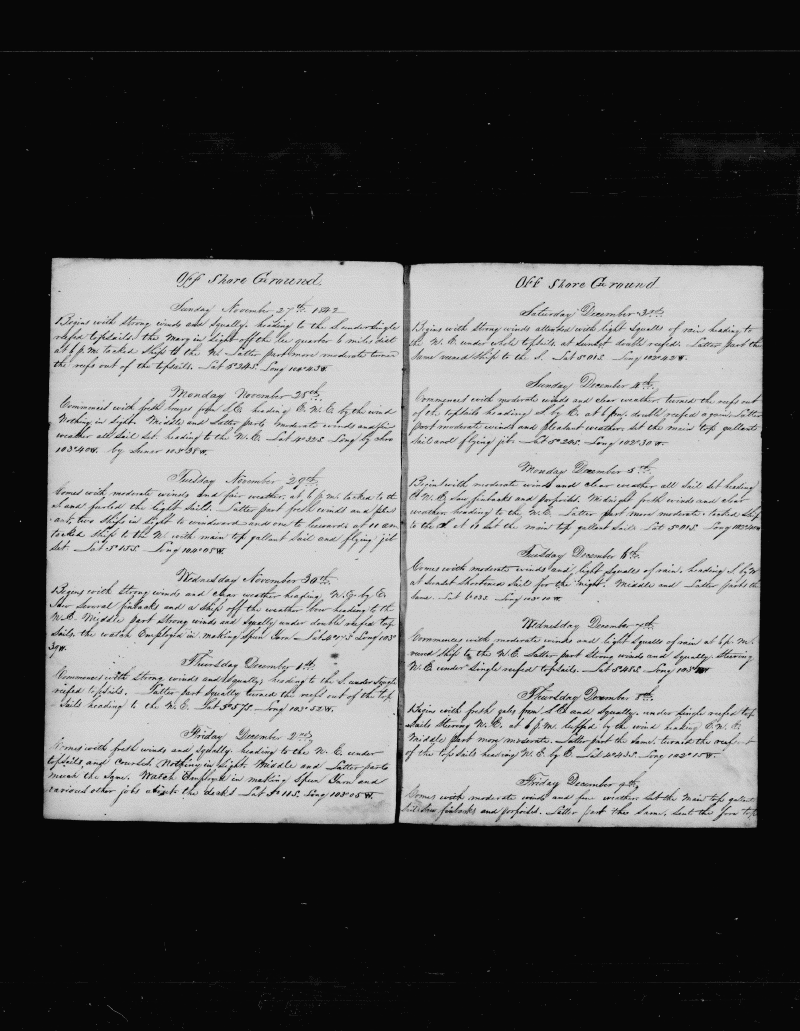 Off Shore Ground
Sunday November 27th 1842
Begins with strong winds and squally. heading to the S under single
reefed topsails. the in sight off the lee quarter 6 miles dist
at 6 P.M. tacked ship to the N. Latter part more moderate turned
the reefs out of the topsails. Lat Long
Monday November 28th
Commences with fresh breezes from S.E. heading E.N.E. by the wind
Nothing in sight. Middle and Latter parts moderate winds and fair
weather all sail set. heading to the N.E. Lat Long by chro
103°40W. by Lunar
Tuesday November 29th
Comes with moderate winds and fair weather. at 6 P.M. tacked to the
S and furled the light sails. Latter part fresh winds and pleas
ant, two ships in sight to windward and one to leeward. at 11 am
tacked ship to the N. with main top gallant sail and flying jib
set. Lat 5°15S. Long 104°05W.
Wednesday November 30th
Begins with strong winds and clear weather heading N.E. by E.
Saw several finbacks and a ship off the weather bow heading to the
N.E. Middle part strong winds and squally under double reefed top
sails. the watch employed in making spun yarn. Lat Long 103°
30W.
Thursday December 1st
Commences with strong winds and squally, heading to the S. under single
reefed topsails. Latter part squally turned the reefs out of the top
sails heading to the N.E. Lat Long 103°52W.
Friday December 2nd
Comes with fresh winds and squally. heading to the N.E. under
topsails and courses. Nothing in sight. Middle and Latter parts
much the same. Watch employed in making spun yarn and
various other jobs about the decks Lat 5°11S. Long 103°05W.
Off Shore Ground
Saturday December 3rd
Begins with strong winds attended with light squalls of rain heading to
the N.E. under whole topsails at sunset double reefed. Latter part the
same weared ship to the S. Lat 5°01S. Long 102°42W.
Sunday December 4th
Commences with moderate winds and clear weather turned the reefs out
of the topsails heading S by E. at 6 pm. double reefed again. Latter
part moderate winds and pleasant weather. set the main top gallant
sail and flying jib. Lat 5°20S. Long 102°30W.
Monday December 5th
Begins with moderate winds and clear weather all sail set heading
E.N.E. saw finbacks and porpoises. Midnight fresh winds and clear
weather heading to the N.E. Latter part more moderate. tacked ship
to the S. at 11 set the main top gallant sail. Lat 5°01S. Long
Tuesday December 6th
Comes with moderate winds and light squalls of rain. heading S. by W.
At sunset shortened sail for the night. Middle and Latter parts the
same. Lat Long 103°10W.
Wednesday December 7th
Commences with moderate winds and light squalls of rain at 6 P.M.
weard ship to the N.E. Latter part strong winds and squally. Steering
N.E. under single reefed topsails. Lat 5°48S. Long
Thursday December 8th
Begins with fresh gales from S.E. and squally. under single reefed top
sails steering N.E. at 6 P.M. luffed by the wind heading E.N.E.
Middle part more moderate. Latter part the same. turned the reefs out
of the topsails heading N.E. by E. Lat 4°43S. Long 102°15W.
Friday December 9th
Comes with moderate winds and fair weather set the main top gallant
sail saw finbacks and porpoises. Latter part the same. sent the fore top